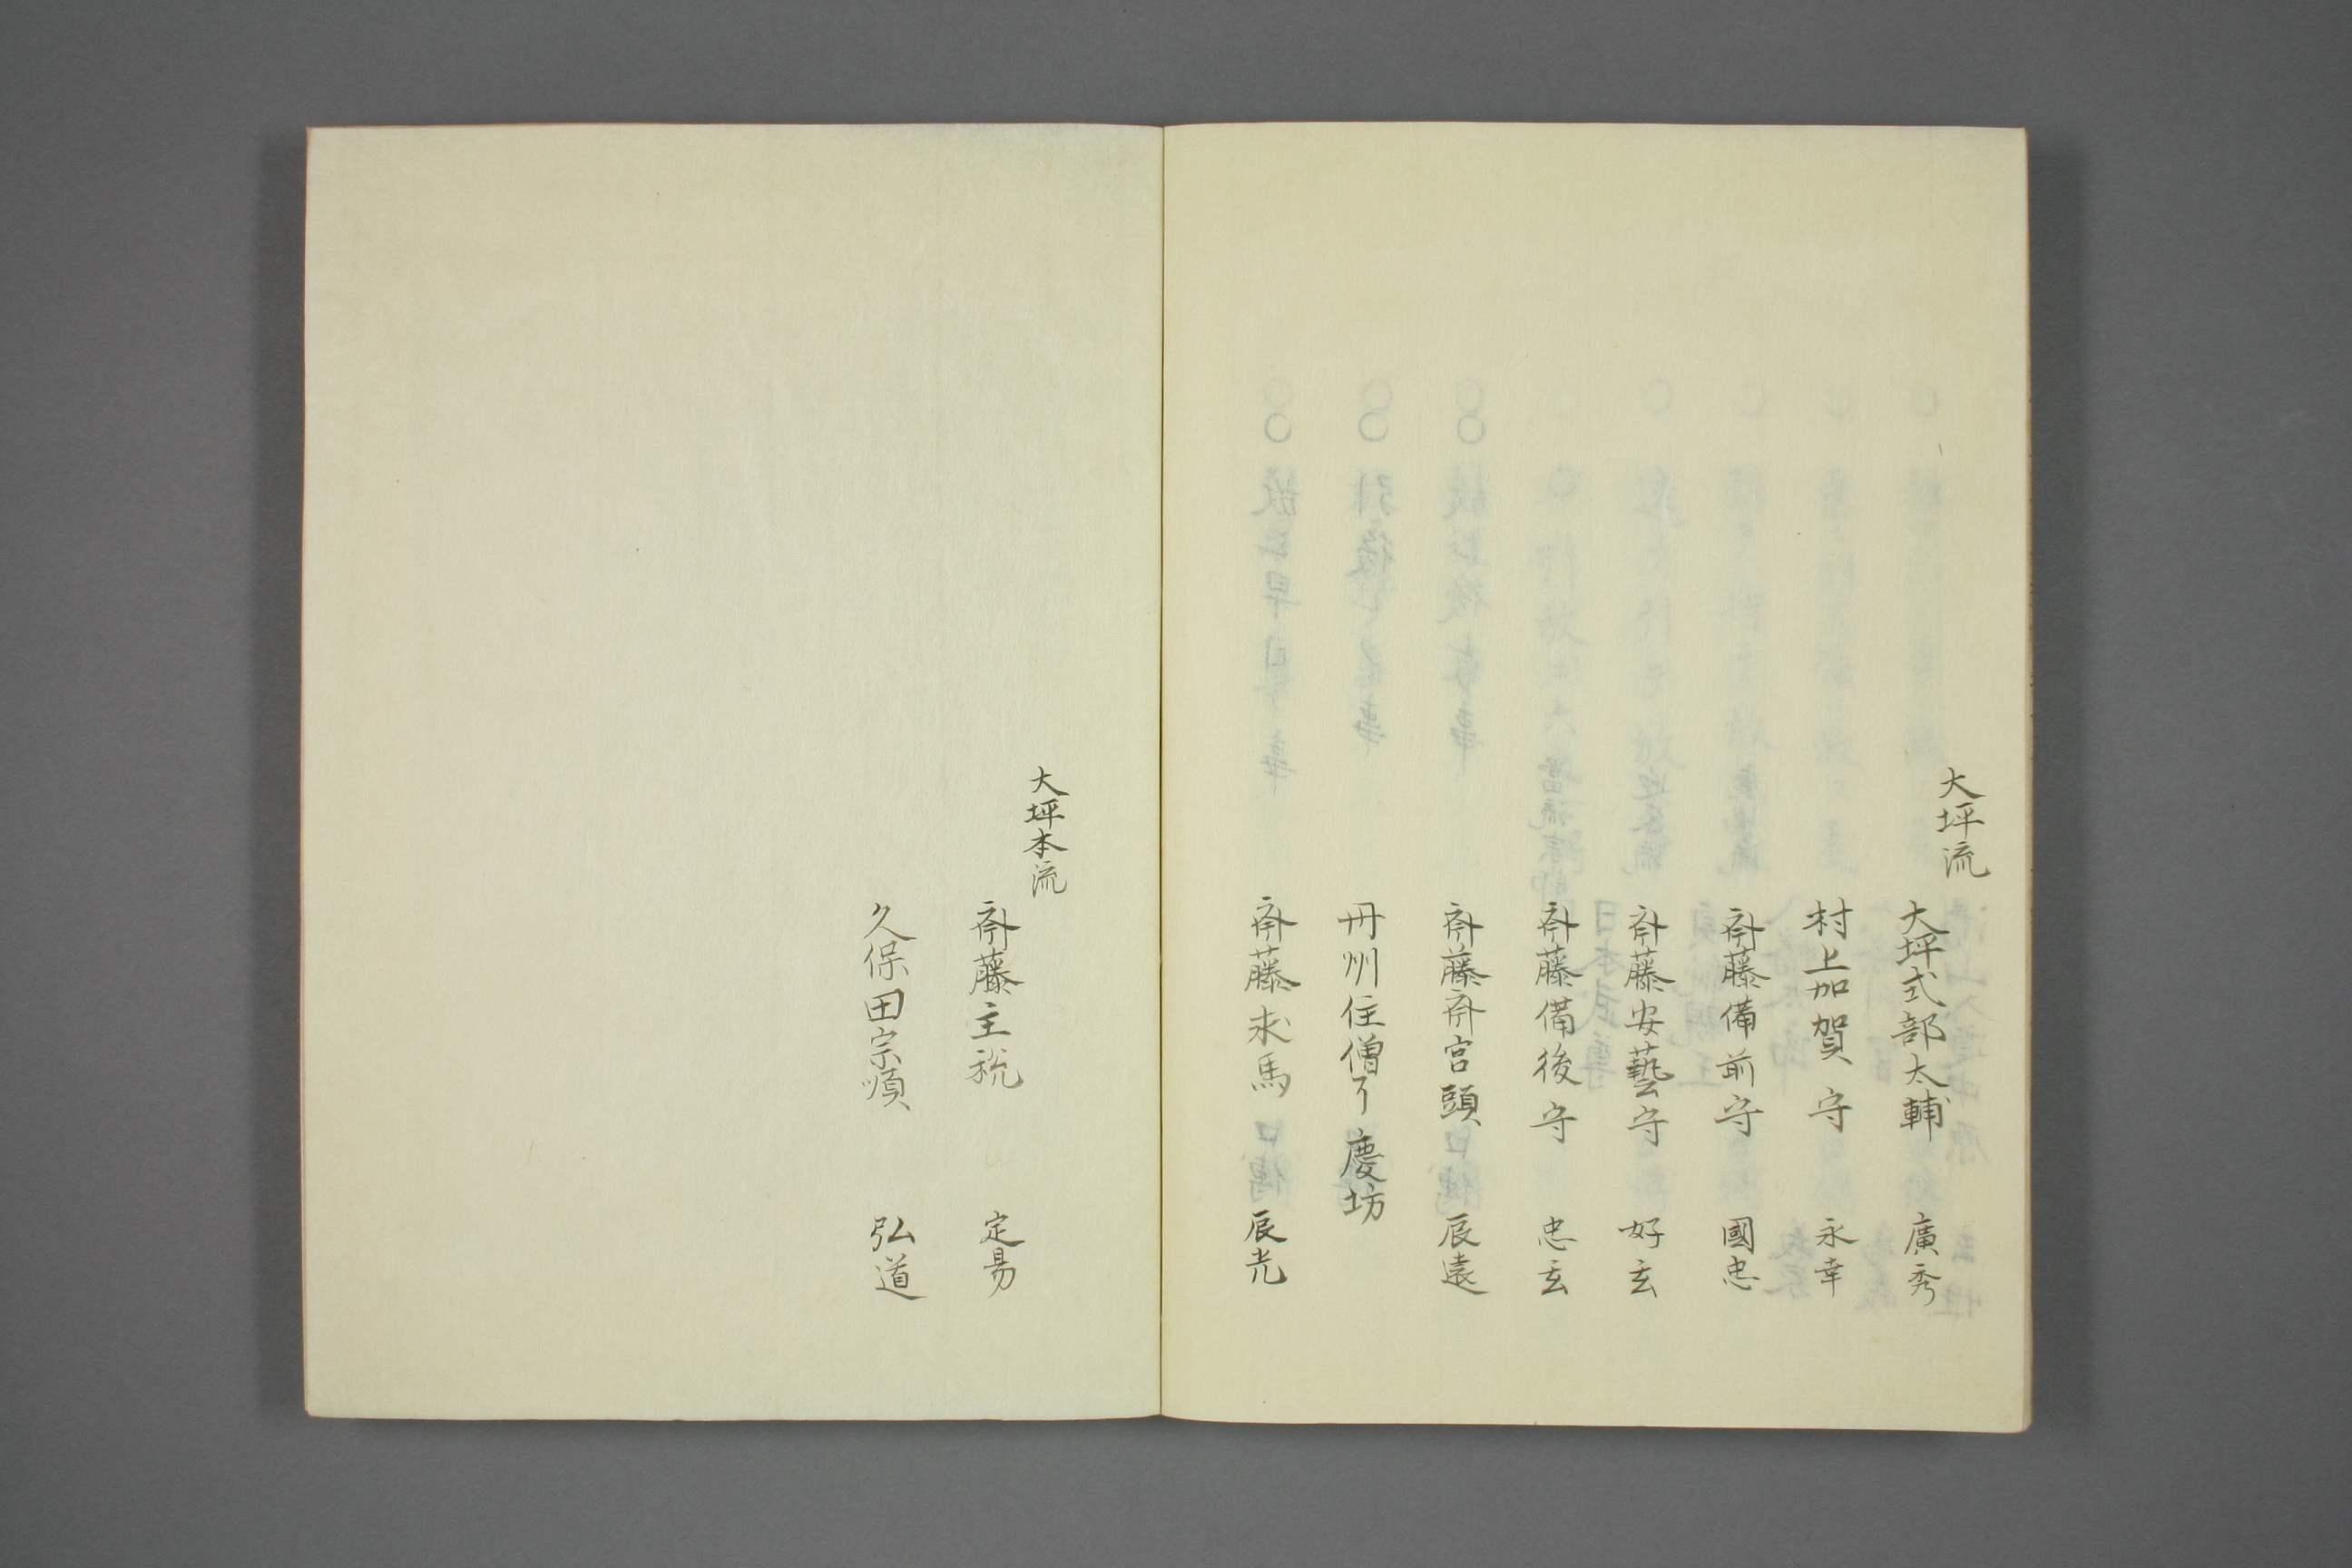 大坪流
大坪式部太輔 廣秀
村上加賀守 永幸
斎藤備前守 國忠
斎藤安藝守 好玄
斎藤備後守 忠玄
斎藤斎宮頭 辰遠
丹州住僧了慶坊
斎藤求馬 辰光
大坪本流
斎藤主税 定易
久保田宗順 弘道